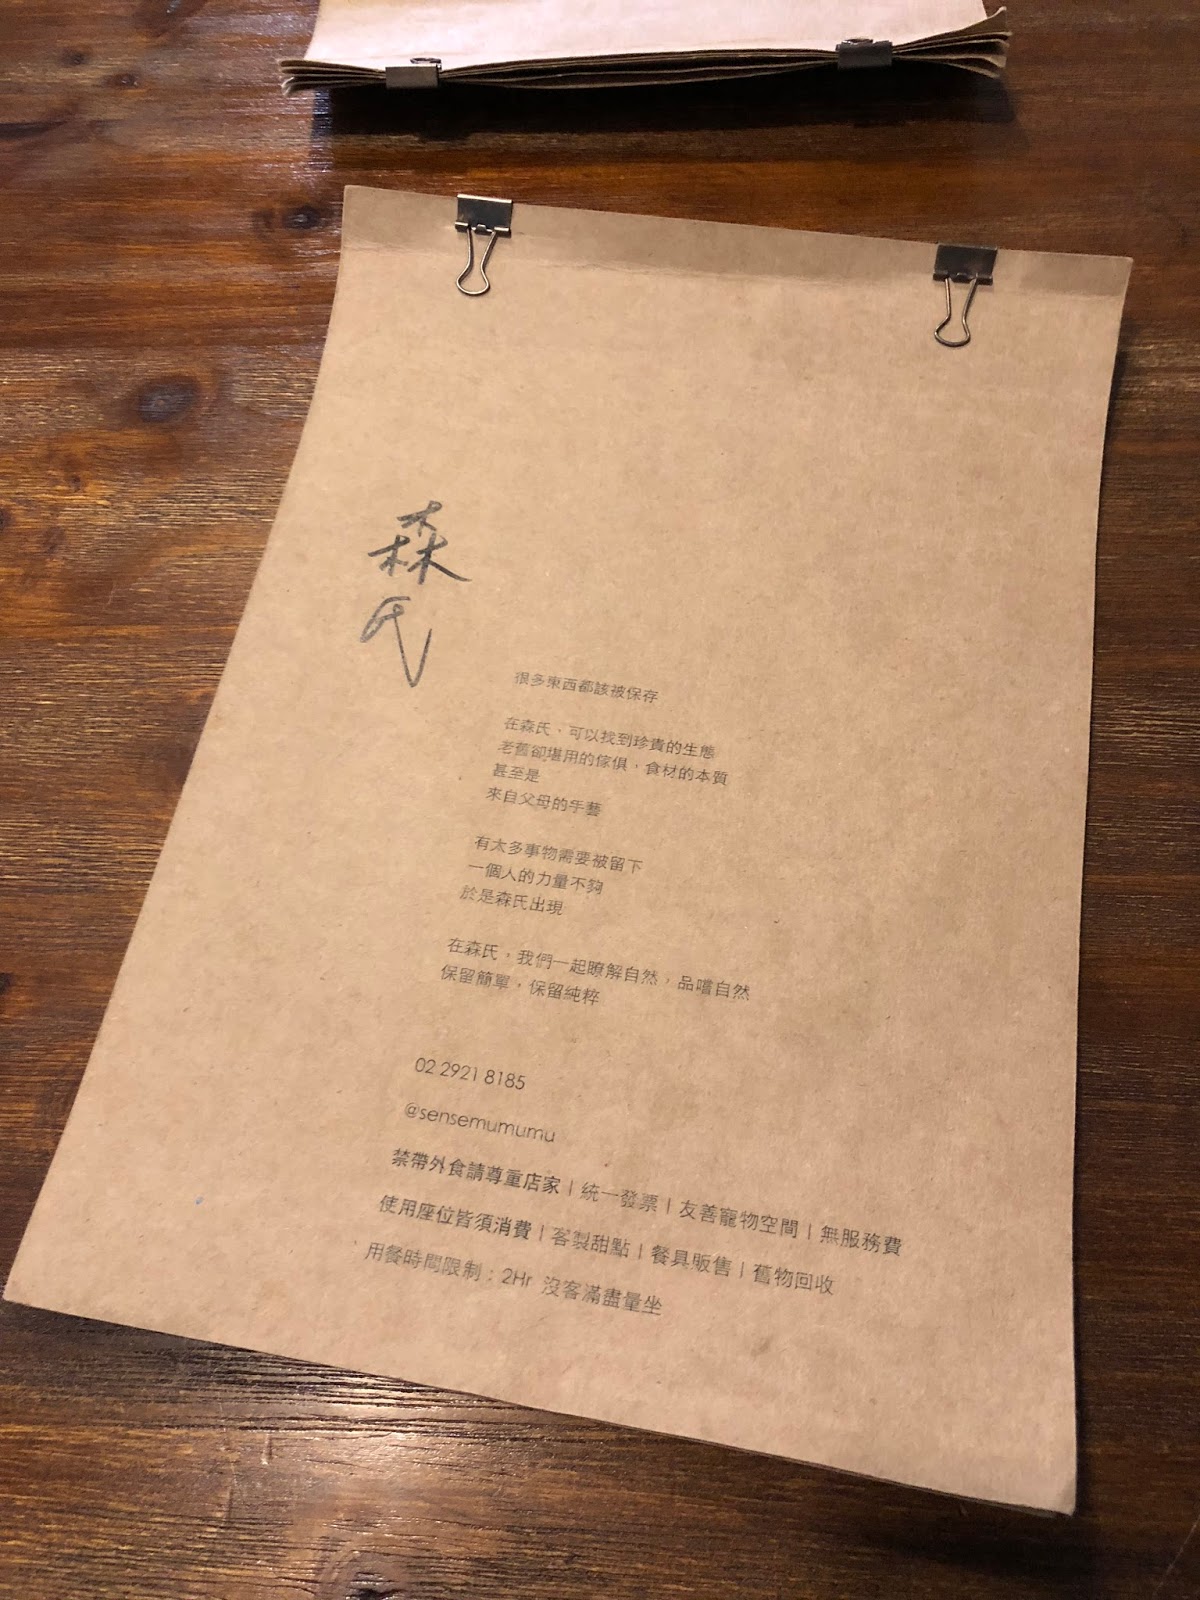 森氏
很多東西都該被保存
在森氏，可以找到珍貴的生態
老舊卻堪用的傢俱，食材的本質
甚至是
來自父母的手藝
有太多事物需要被留下
一個人的力量不夠
於是森氏出現
在森氏，我們一起瞭解自然，品嚐自然
保留簡單，保留純粹
02 2921 8185
@sensemumumu
禁帶外食請尊重店家 | 統一發票 | 友善寵物空間 | 無服務費
使用座位皆須消費 | 客製甜點 | 餐具販售 | 舊物回收
用餐時間限制：2Hr 沒客滿盡量坐